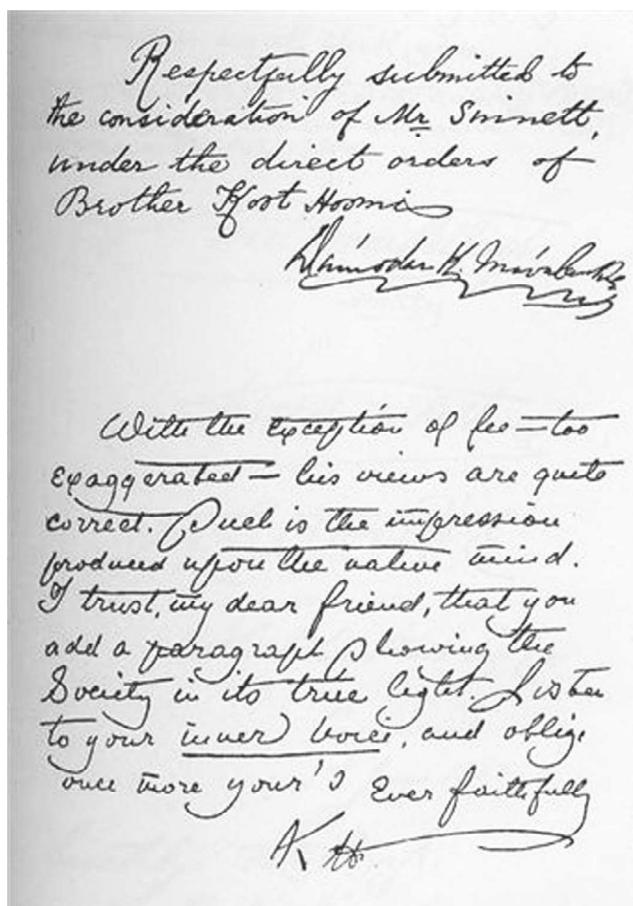 Respectfully submitted to
the consideration of Mr Sinnett,
under the direct orders of
Brother Koot Hoomi
Dâmodar K. Mâvalankar
With the exception of fee — too
exaggerated — his views are quite
correct. Such is the impression
produced upon the native mind.
I trust, my dear friend, that you
add a paragraph showing the
Society in its true light. Listen
to your inner voice, and oblige
once more your's Ever faithfully
K H.